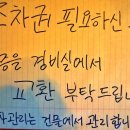 주차권 필요하신
증을 경비실에서
교환 부탁드립니
차관리는 건물에서 관리합니